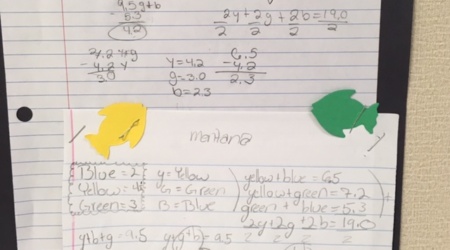 9.5g+b
- 5.3
4.2
2y+2g+2b=19.0
2 2 2 2
7.2 y+g
- 4.2 y
3.0
y=4.2
g=3.0
b=2.3
6.5
- 4.2
2.3
montana
Blue = 2
Yellow = 4
Green = 3
y = Yellow
G = Green
B = Blue
yellow + blue = 6.5
yellow + green = 7.2
green + blue = 5.3
2y+2g+2b=19.0
y+b+g=9.5